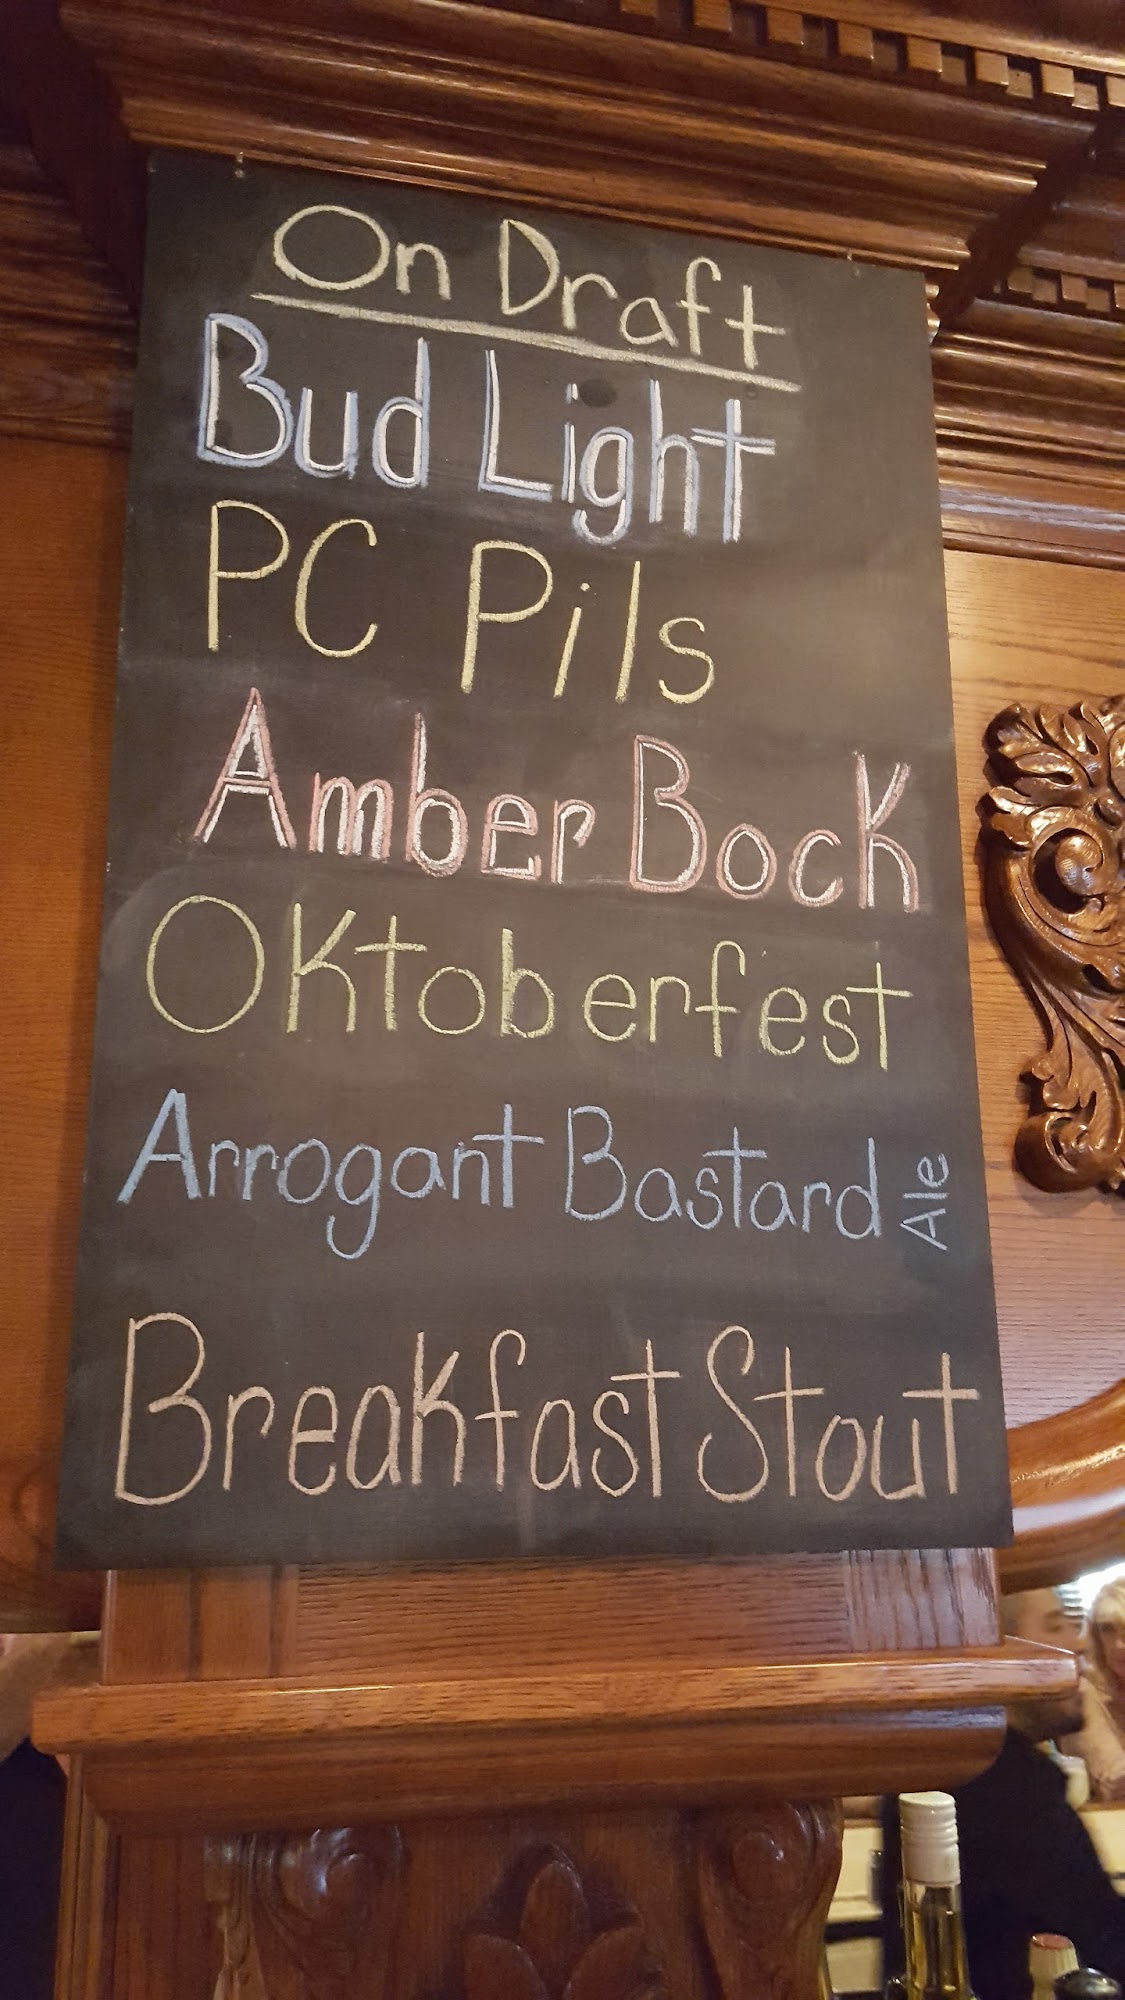 On Draft
Bud Light
PC Pils
Amber Bock
Oktoberfest
Arrogant Bastard Ale
Breakfast Stout